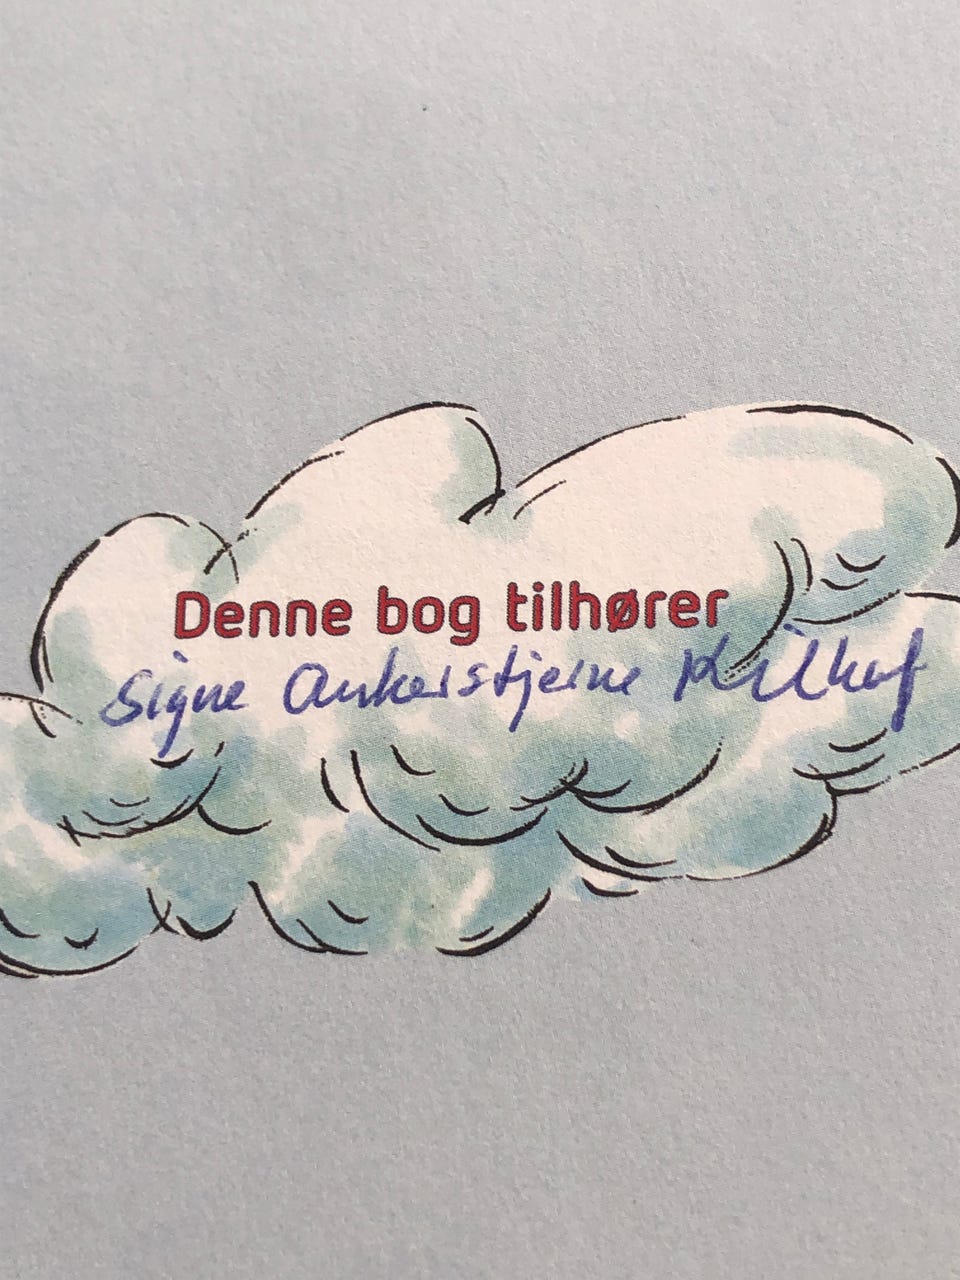 Denne bog tilhører
Signe Ankerstjerne